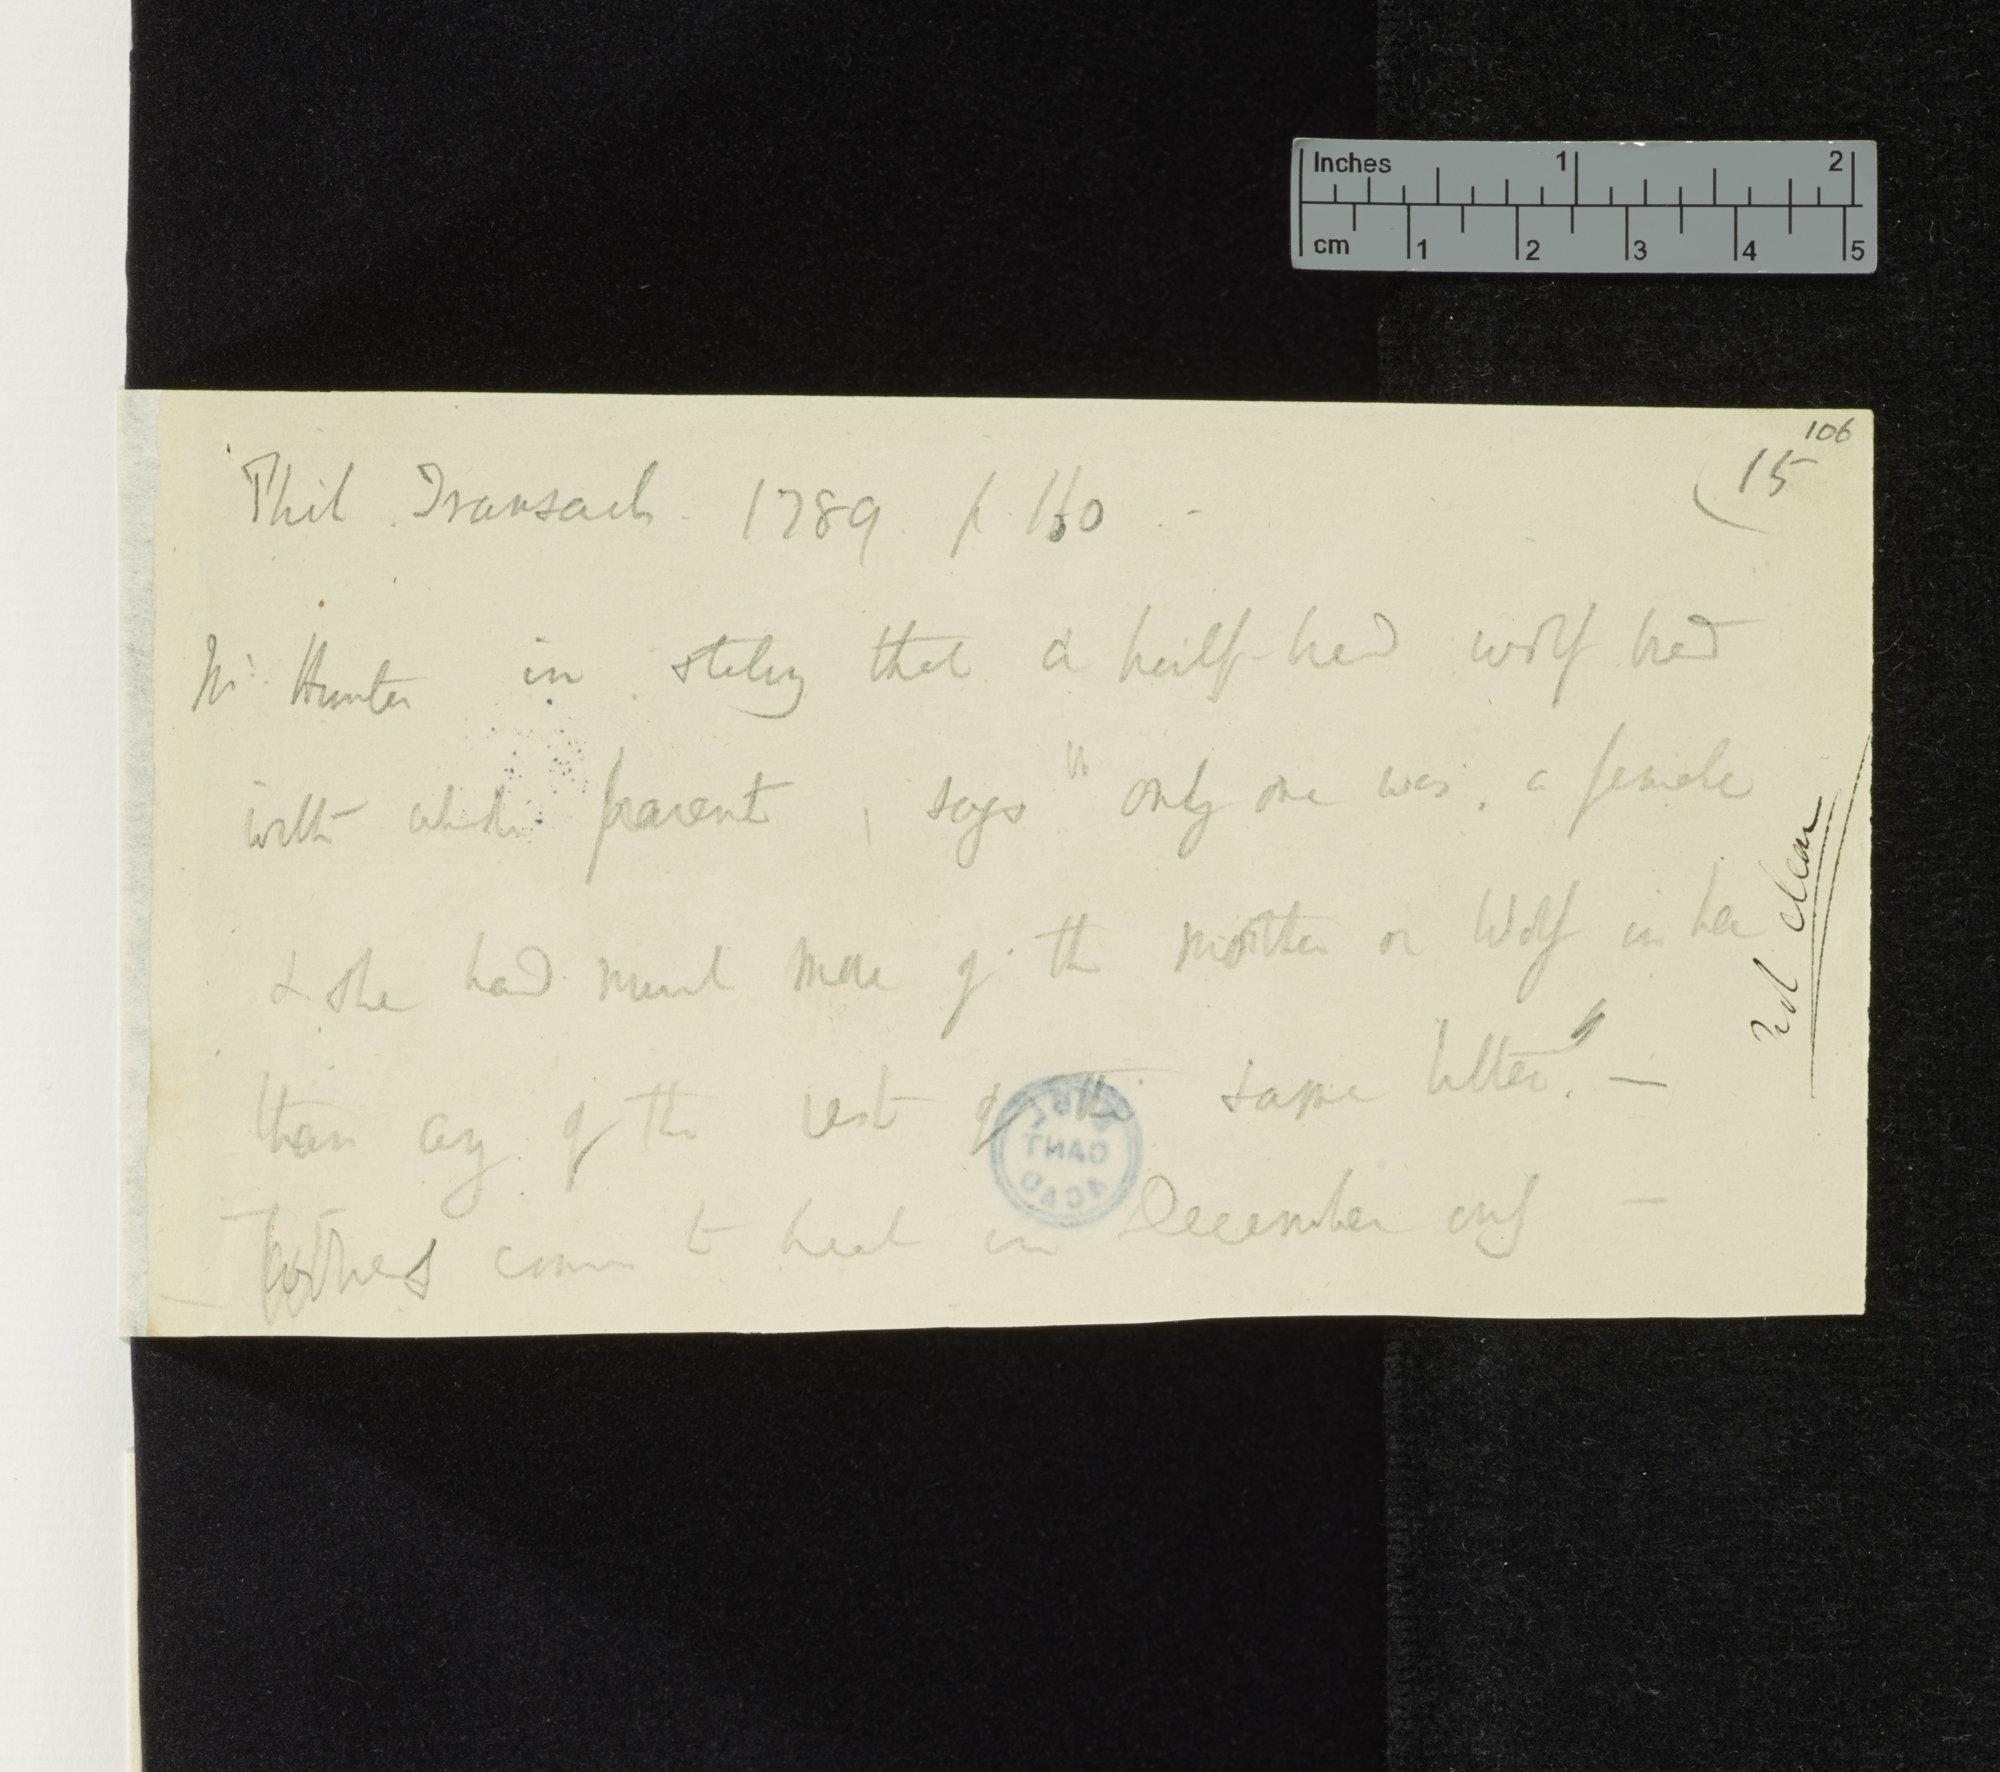 106
(15
Phil Transact. 1789 p. 160 -
Mr Hunter in stating that a half-bred wolf bred
with whole parent, says "only one was a female
& she had much more of the mother or Wolf in her
than any of the rest of the same litter". —
come to heat in December only —
not clear
Inches 1 2
cm 1 2 3 4 5